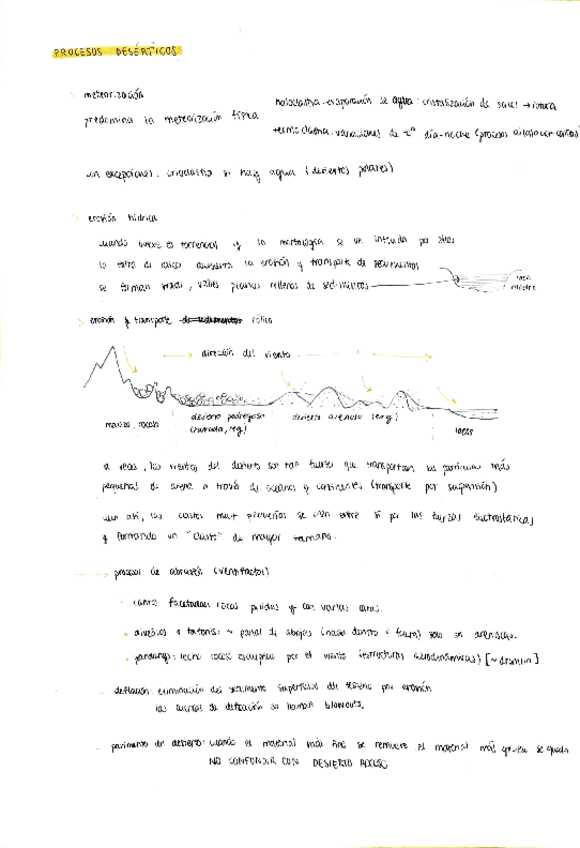 PROCESOS DESÉRTICOS
meteorización
predomina la meteorización física
haloclastia: evaporación de agua: cristalización de sales → rotura
termoclastia: variaciones de tª día-noche (procesos dilatación
con excepciones: crioclastia si hay agua (desiertos polares)
erosión hídrica
cuando es torrencial y la morfología se ve por ellos
la falta de aumenta la erosión y transporte de sedimentos
se forman wadi, valles planos rellenos de sedimentos
erosión y transporte eólico
dirección del viento
macizo rocoso
desierto pedregoso (hamada, reg)
desierto arenoso (erg)
loess
a veces, los vientos del desierto son tan fuertes que transportan las partículas más
pequeñas de arena a través de océanos y continentes (transporte por suspensión)
aun así, los clastos muy pequeños se unen entre sí por las fuerzas electrostáticas
y formando un "clasto" de mayor tamaño.
procesos de abrasión (ventifactos)
cantos facetados: rocas pulidas y con varias caras.
alveolos o tafonis: ~ panal de abejas (hacia dentro y fuera) solo en areniscas.
yardangs: lecho rocoso esculpido por el viento (estructuras aerodinámicas) [~ drumlin]
deflación: eliminación del sedimento superficial del terreno por erosión
las cuencas de deflación se llaman blowouts.
pavimento del desierto: cuando el material más fino se remueve, el material más grueso se queda
NO CONFUNDIR CON DESIERTO ROCOSO